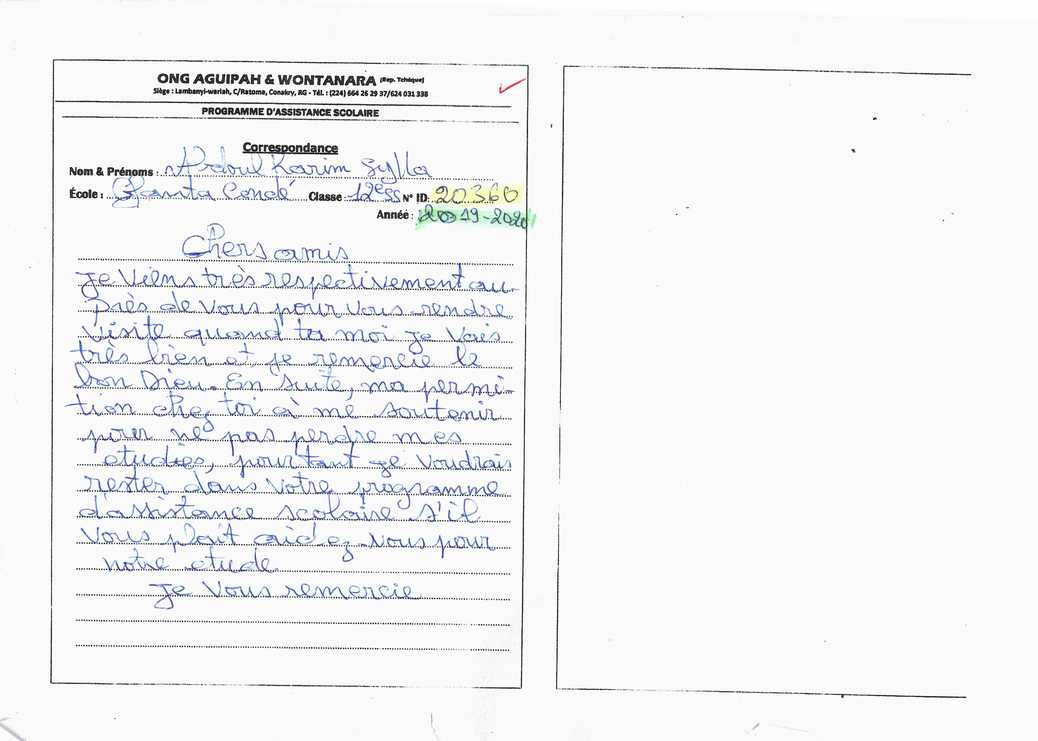 ONG AGUIPAH & WONTANARA (Rep. Tchèque)
Siège : Lambanyi-wariah, C/Ratoma, Conakry, RG - Tél. : (224) 664 26 29 37/624 031 338
PROGRAMME D'ASSISTANCE SCOLAIRE
Correspondance
Nom & Prénoms : Abdoul Karim Sylla
École : Fanta Condé Classe 12e SS N° ID: 20360
Année : 2019-2020
Chers amis
Je Viens très respectivement au-
près de Vous pour Vous rendre
Visite quand ta moi je Vais
très bien et je remercie le
bon Dieu. En suite, ma permi-
tion chez toi à me soutenir
pour ne pas perdre mes
etudies, pourtant je Voudrais
rester dans Votre programme
d'assistance scolaire s'il
Vous plait aidez-Vous pour
notre etude
Je Vous remercie